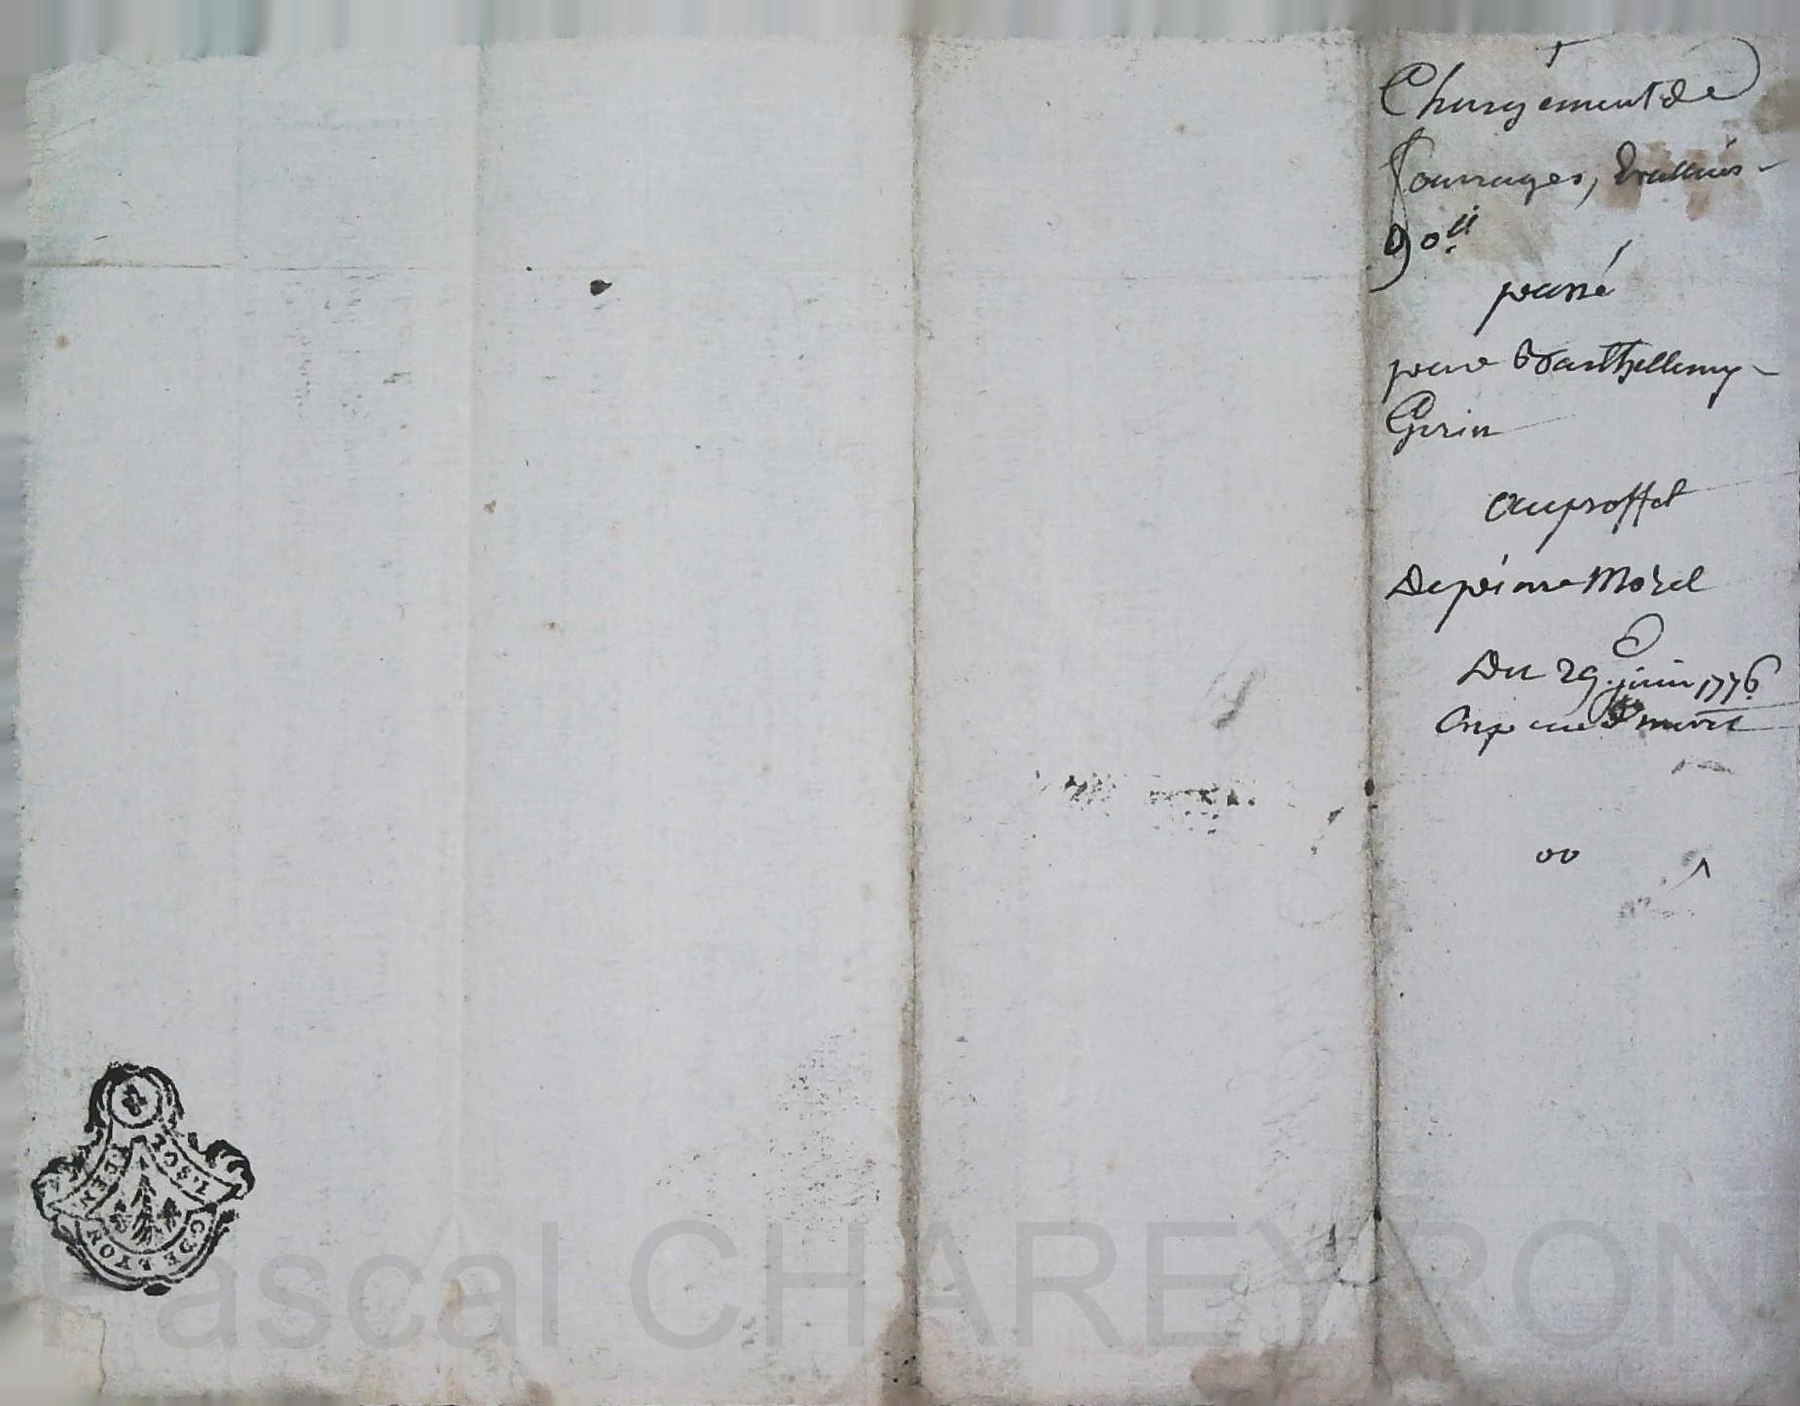 Chargement de
fourrages, Evalluës
90ll
passé
pour Barthellemy
Gerin
Au proffit
De pierre Morel
Du 29 juin 1776
oo
GEN
2 SOLS
G DE LYON
Pascal CHAREYRON